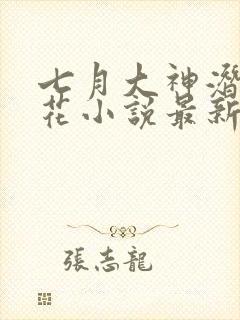 七月大神潛
花小說最新
張志龍